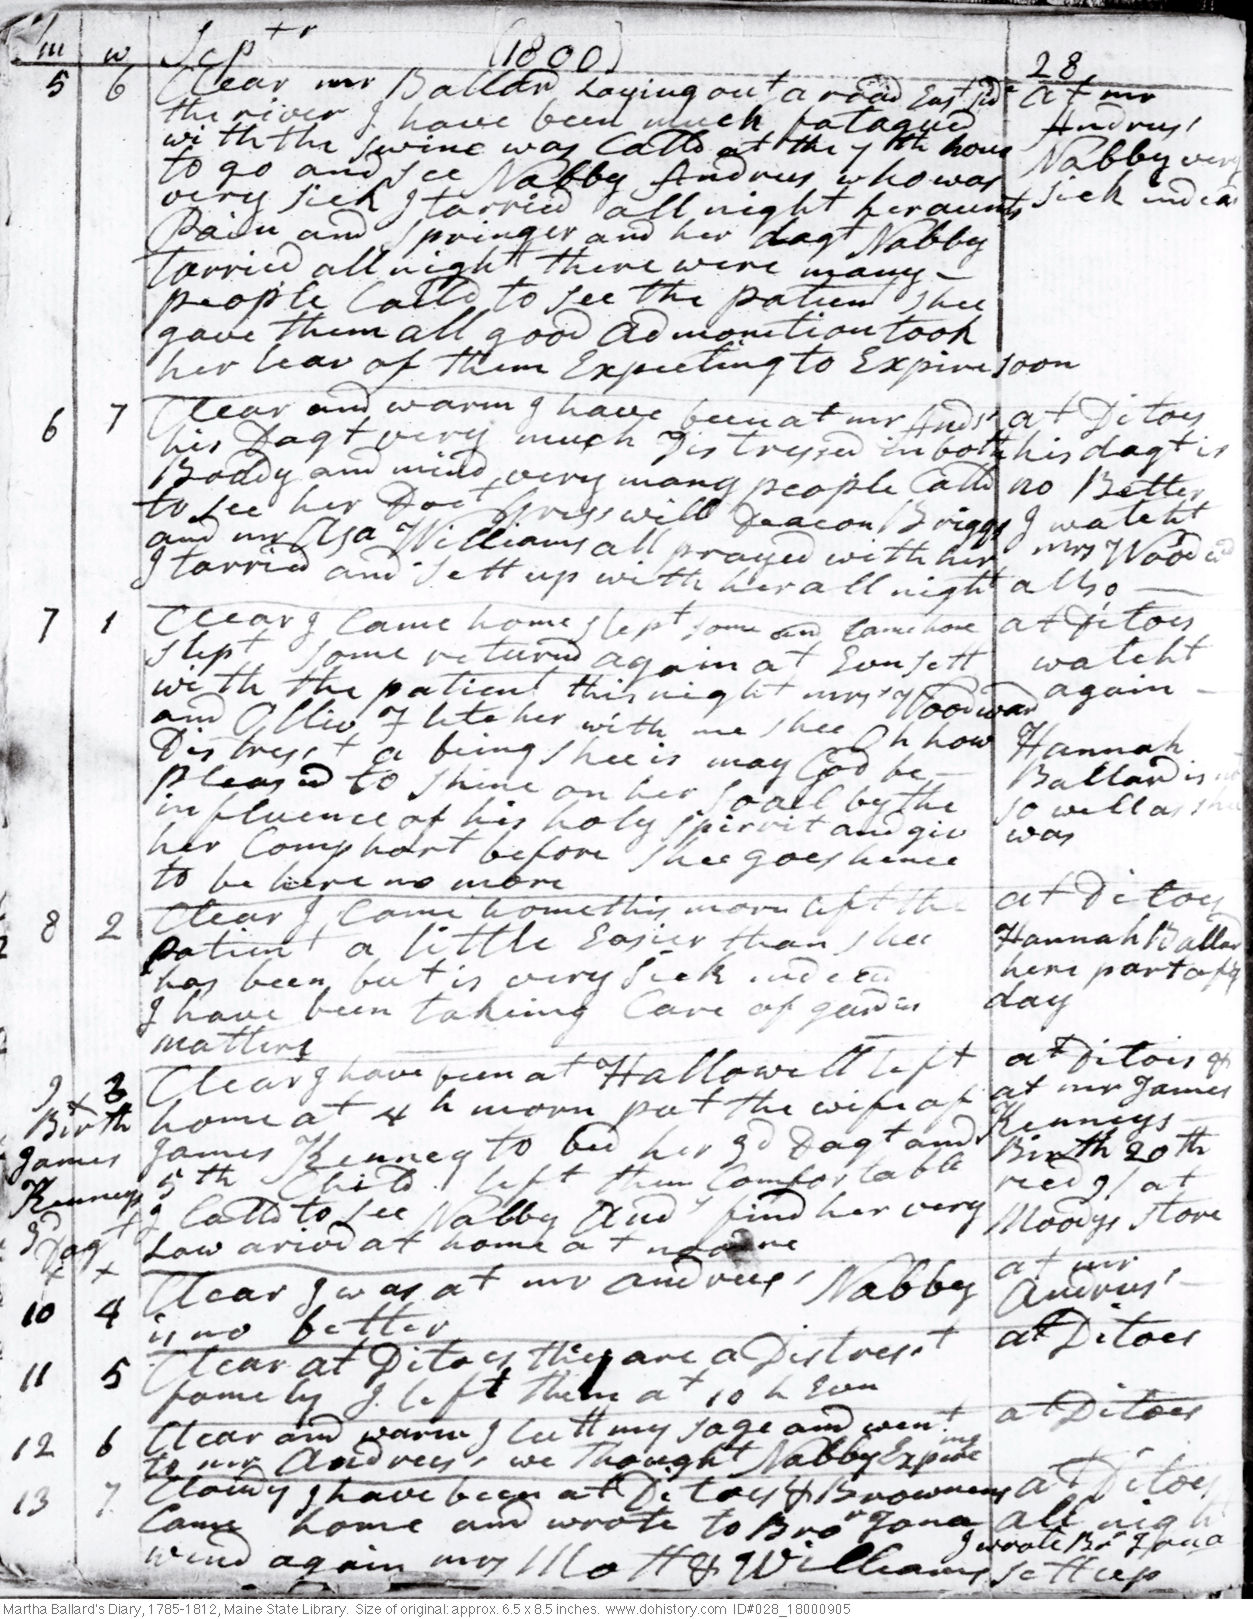 m w Sept^r (1800) 28
5 6 Clear mr Ballard Laying out a road East side
the river I have been much fatagued
with the swine was Calld at the 7th hour
to go and see Nabby Andrus who was
very sick I tarried all night her aunts
Pain and Springer and her dagt Nabby
tarried all night there were many
people Calld to see the patient shee
gave them all good admonition took
her leav of them Expecting to Expire soon
at mr
Andrus'
Nabby very
sick indead
6 7 Clear and warm I have been at mr Ands'
his Dagt very much Distressed in both
Boddy and mind very many people Calld
to see her Doct Deacon Briggs
and mr Asa Williams all prayed with her
I tarried and sett up with her all night
at Ditoes
his dagt is
no Better
I watcht
mrs Wood
allso
7 1 Clear I Came home slept some and Came home
slept some returnd again at Sun sett
with the patient this night mrs Woodward
and Olliv Fletcher with me shee Oh how
Distresst a being shee is may God be
pleased to shine on her soall by the
influence of his holy spirrit and giv
her Comphort before shee goes hence
to be here no more
at Ditoes
watcht
again
Hannah
Ballard is not
so well as shee
was
8 2 Clear I Came home this morn left the
patient a little Easier than shee
has been but is very sick indeed
I have been taking Care of garden
matters
at Ditoes
Hannah Ballard
here part of ye
day
9 3 Clear I have been at Hallowell left
home at 4 h morn put the wife of
James Kenney to bed her 3d Dagt and
5th Child left them Comfortable
I Calld to see Nabby Ands find her very
Low arivd at home at
Birth
James
Kenneys
3d
Dagt
x x
at Ditois &
at mr James
Kenneys
Birth 20th
recd 9/ at
Moodys store
10 4 Clear I was at mr andrus' Nabby
is no better
at mr
Andrus'
11 5 Clear at Ditoes they are a Distresst
famely I left them at 10 h Evn
at Ditoes
12 6 Clear and warm I Cutt my sage and went
to mr Andrus's we thought Nabby Expireing
at Ditoes
13 7 Cloudy I have been at Ditoes & Browneus
Came home and wrote to Bror Jona
went again mrs Mott & Williams
at Ditoes
all night
I wrote Br Jona
sett up
Martha Ballard's Diary, 1785-1812, Maine State Library. Size of original: approx. 6.5 x 8.5 inches. www.dohistory.com ID#028_18000905